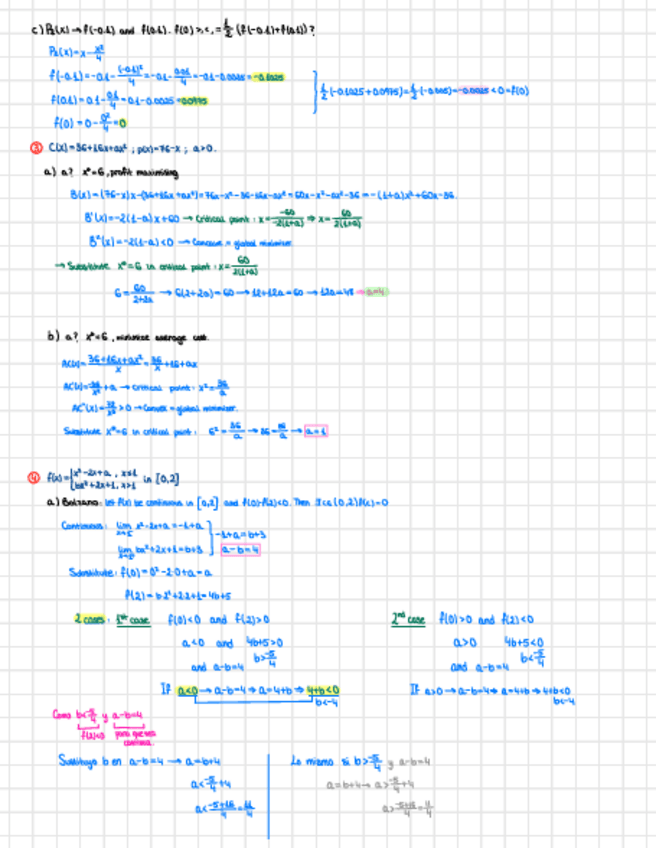 c) P₂(x) → f(-0.1) and f(0.1). f(0) >,<,= ½ (f(-0.1)+f(0.1))?
P₂(x)=x-x²/4
f(-0.1)=-0.1-(-0.1)²/4=-0.1-0.01/4=-0.1-0.0025=-0.1025
f(0.1)=0.1-0.1/4=0.1-0.0025=0.0975
½(-0.1025+0.0975)=½(-0.005)=-0.0025<0=f(0)
f(0)=0-0²/4=0
③ C(x)=36+16x+ax² ; p(x)=76-x ; a>0.
a) a? x*=6, profit maximizing
B(x)=(76-x)x-(36+16x+ax²)=76x-x²-36-16x-ax²=60x-x²-ax²-36=-(1+a)x²+60x-36.
B'(x)=-2(1-a)x+60 → Critical point: x=-60/-2(1+a) ⇒ x=60/2(1+a)
B''(x)=-2(1-a)<0 → Concave = global maximizer.
→ Substitute x*=6 in critical point: x=60/2(1+a)
6=60/2+2a → 6(2+2a)=60 → 12+12a=60 → 12a=48 → a=4
b) a? x*=6, minimize average cost.
AC(x)=36+16x+ax²/x=36/x+16+ax
AC'(x)=-36/x²+a → Critical point: x²=36/a
AC''(x)=72/x³>0 → Convex = global minimizer.
Substitute x*=6 in critical point: 6²=36/a → 36=36/a → a=1
④ f(x)={x²-2x+a, x≤1
bx²+2x+1, x>1 in [0,2]
a) Bolzano: Let f(x) be continuous in [0,2] and f(0)·f(2)<0. Then ∃c∈(0,2) f(c)=0
Continuous: lim x²-2x+a=-1+a
-1+a=b+3
lim bx²+2x+1=b+3
a-b=4
Substitute: f(0)=0²-2·0+a=a
f(2)=b·2²+2·2+1=4b+5
2 cases: 1st case f(0)<0 and f(2)>0
a<0 and 4b+5>0
b>-5/4
and a-b=4
If a<0 → a-b=4 ⇒ a=4+b ⇒ 4+b<0
b<-4
2nd case f(0)>0 and f(2)<0
a>0 4b+5<0
b<-5/4
and a-b=4
If a>0 → a-b=4 ⇒ a=4+b ⇒ 4+b<0
b<-4
Como b<-5/4 y a-b=4
f(2)<0 para que sea continua.
Sustituyo b en a-b=4 → a=b+4
a<-5/4+4
a<-5+16/4=11/4
Lo mismo si b>-5/4 y a-b=4
a=b+4 → a>-5/4+4
a>-5+16/4=11/4